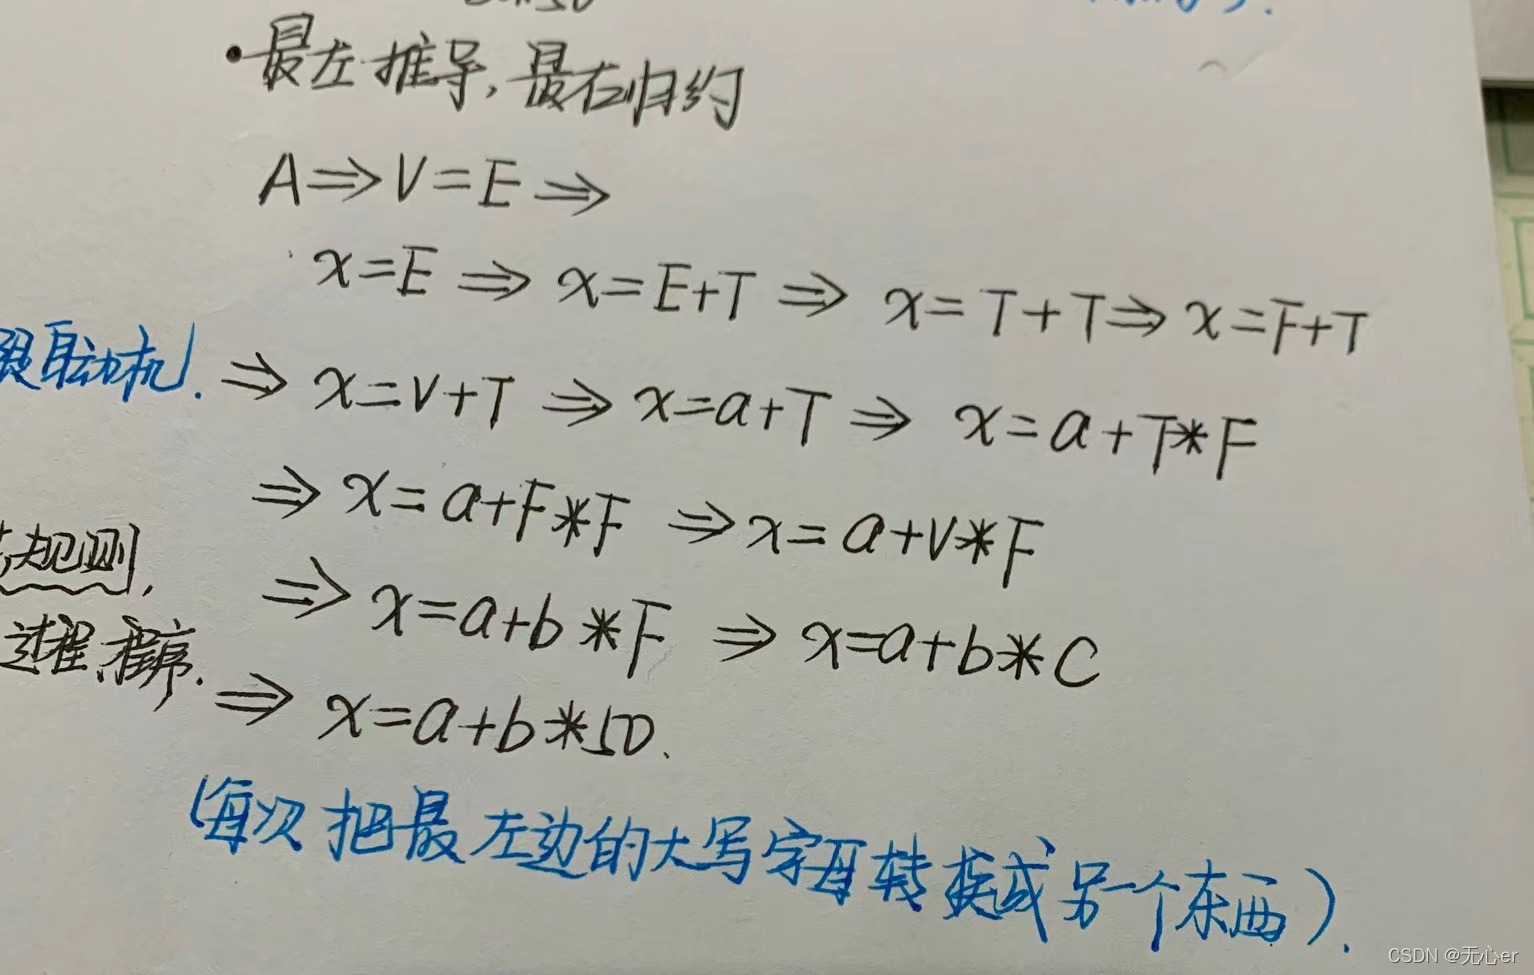 •最左推导,最右归约
A⇒V=E⇒
x=E⇒x=E+T⇒x=T+T⇒x=F+T
段自动机.
⇒x=V+T⇒x=a+T⇒x=a+T*F
⇒x=a+F*F⇒x=a+V*F
规则,
⇒x=a+b*F⇒x=a+b*C
过程,程序.
⇒x=a+b*50.
(每次把最左边的大写字母转换成另一个东西).
CSDN @无心er